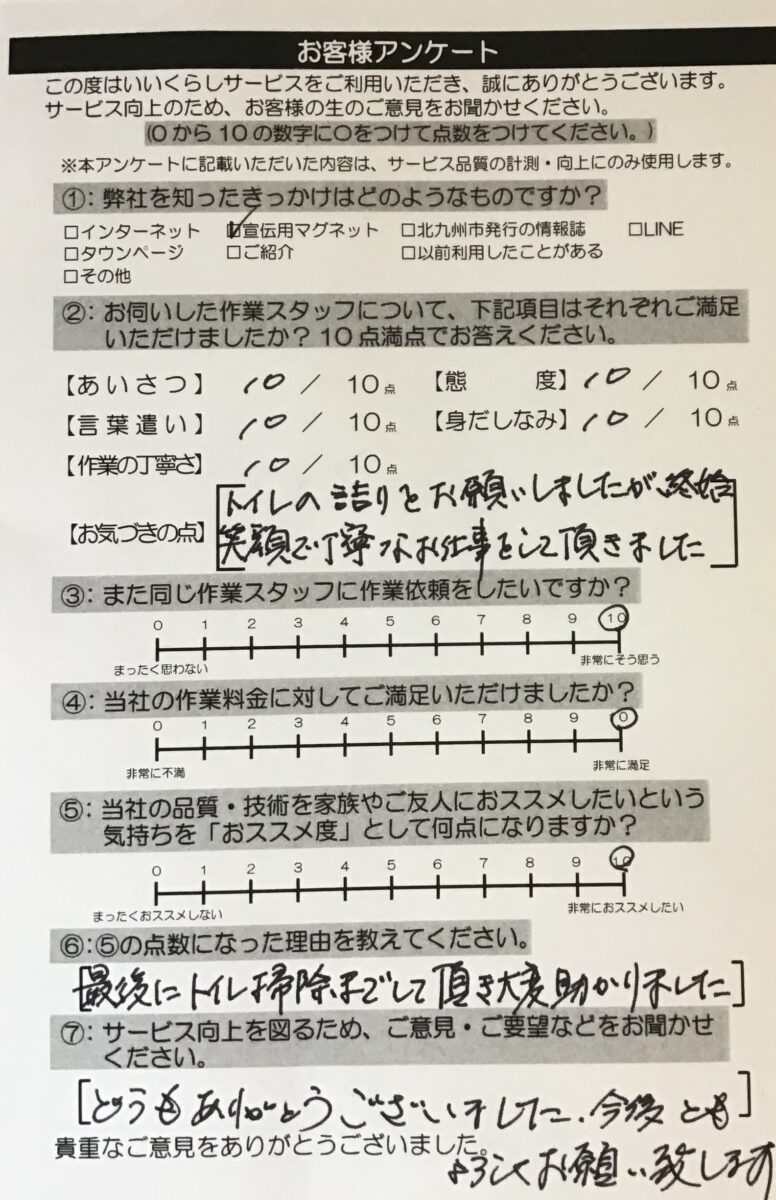 お客様アンケート
この度はいいくらしサービスをご利用いただき、誠にありがとうございます。
サービス向上のため、お客様の生のご意見をお聞かせください。
(0から10の数字に〇をつけて点数をつけてください。)
※本アンケートに記載いただいた内容は、サービス品質の計測・向上にのみ使用します。
①：弊社を知ったきっかけはどのようなものですか？
□インターネット ☑宣伝用マグネット □北九州市発行の情報誌 □LINE
□タウンページ □ご紹介 □以前利用したことがある
□その他
②：お伺いした作業スタッフについて、下記項目はそれぞれご満足
いただけましたか？10点満点でお答えください。
【あいさつ】 10 / 10点 【態度】 10 / 10点
【言葉遣い】 10 / 10点 【身だしなみ】 10 / 10点
【作業の丁寧さ】 10 / 10点
【お気づきの点】
[トイレの詰りをお願いしましたが、終始
笑顔で丁寧なお仕事をして頂きました]
③：また同じ作業スタッフに作業依頼をしたいですか？
0 1 2 3 4 5 6 7 8 9 10
まったく思わない 非常にそう思う
④：当社の作業料金に対してご満足いただけましたか？
0 1 2 3 4 5 6 7 8 9 10
非常に不満 非常に満足
⑤：当社の品質・技術を家族やご友人におススメしたいという
気持ちを「おススメ度」として何点になりますか？
0 1 2 3 4 5 6 7 8 9 10
まったくおススメしない 非常におススメしたい
⑥：⑤の点数になった理由を教えてください。
[最後にトイレ掃除までして頂き大変助かりました]
⑦：サービス向上を図るため、ご意見・ご要望などをお聞かせ
ください。
[どうもありがとうございました、今後とも]
よろしくお願い致します
貴重なご意見をありがとうございました。